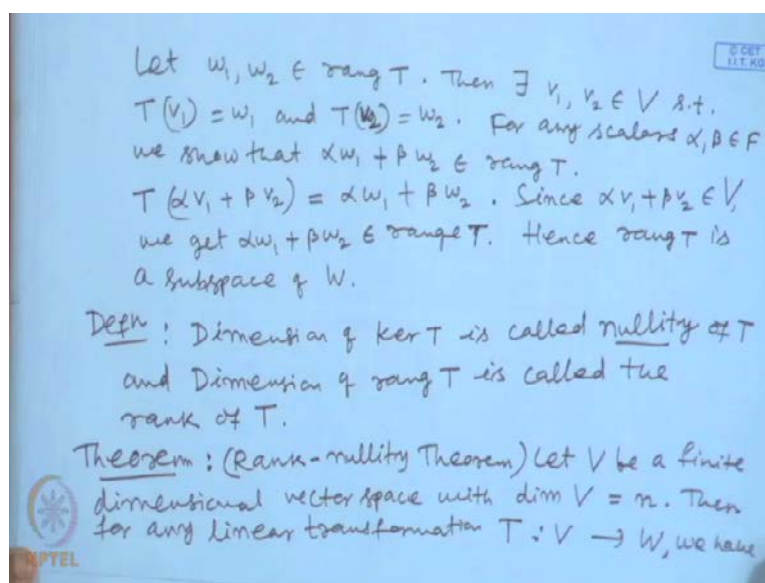 Let w₁, w₂ ∈ rang T. Then ∃ v₁, v₂ ∈ V s.t.
T(v₁) = w₁ and T(v₂) = w₂. For any scalars α, β ∈ F
we show that αw₁ + βw₂ ∈ rang T.
T(αv₁ + βv₂) = αw₁ + βw₂. Since αv₁ + βv₂ ∈ V,
we get αw₁ + βw₂ ∈ range T. Hence rang T is
a subspace of W.
Defn: Dimension of ker T is called nullity of T
and Dimension of rang T is called the
rank of T.
Theorem: (Rank-nullity Theorem) Let V be a finite
dimensional vector space with dim V = n. Then
for any linear transformation T: V → W, we have
© CET
I.I.T. KG
NPTEL